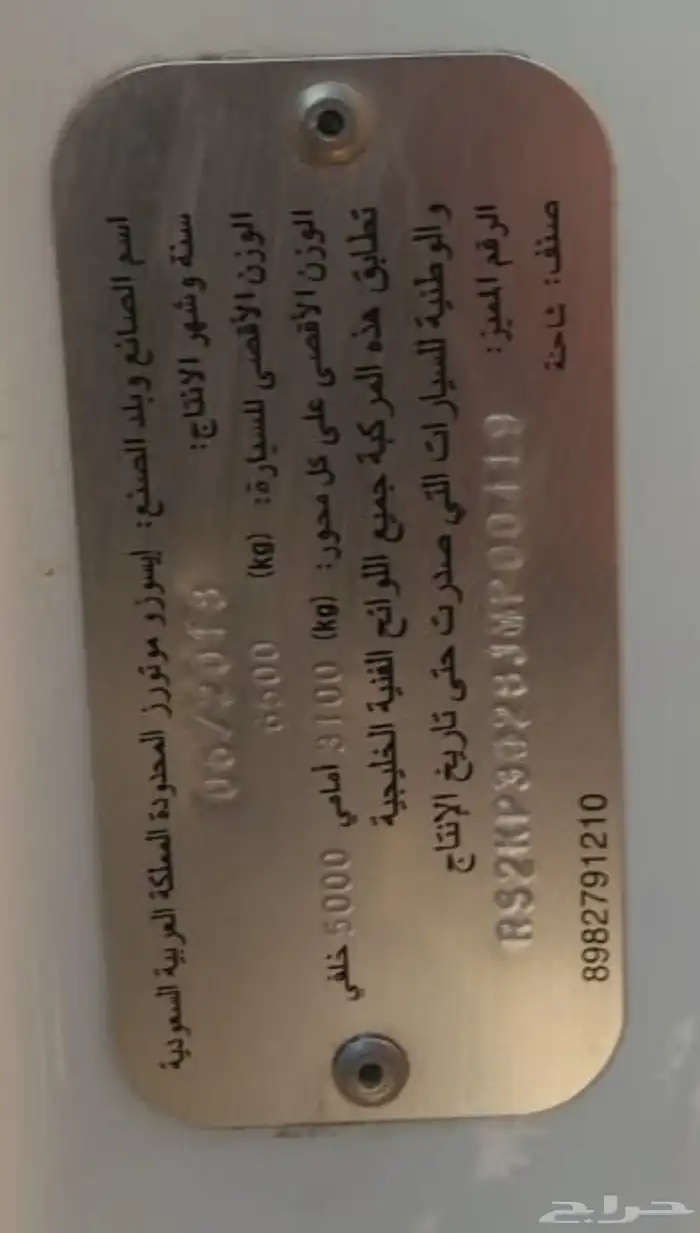 اسم الصانع وبلد الصنع: إيسوزو موتورز المحدودة المملكة العربية السعودية
سنة وشهر الانتاج: 06/2018
الوزن الأقصى للسيارة: (kg) 6500
الوزن الأقصى على كل محور: (kg) 3100 امامي 5000 خلفي
تطابق هذه المركبة جميع اللوائح الفنية الخليجية
والوطنية للسيارات التي صدرت حتى تاريخ الإنتاج
الرقم المميز:
صنف: شاحنة
8982791210
حراج